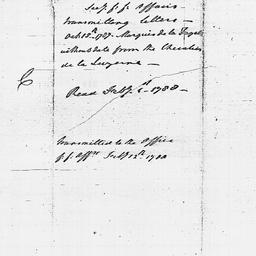 Sup f. f. Affairs
transmitting letters —
Oct 12th 1787. Marquis de la Fayette
without date from the Chevalier
de la Luzerne —
Read July 1st 1788 —
transmitted to the Office
f. f. Affrs July 12th 1788